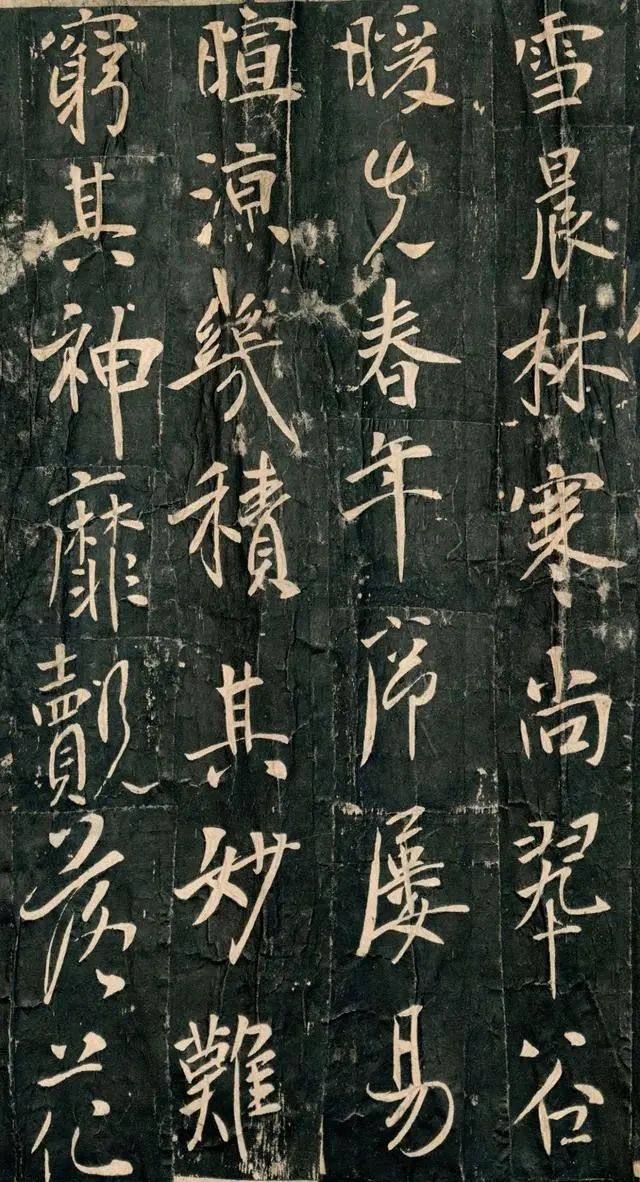 雪晨林寒尚翠谷
暖先春年屢易
暄涼幾積其妙難
窮其神靡覿落花